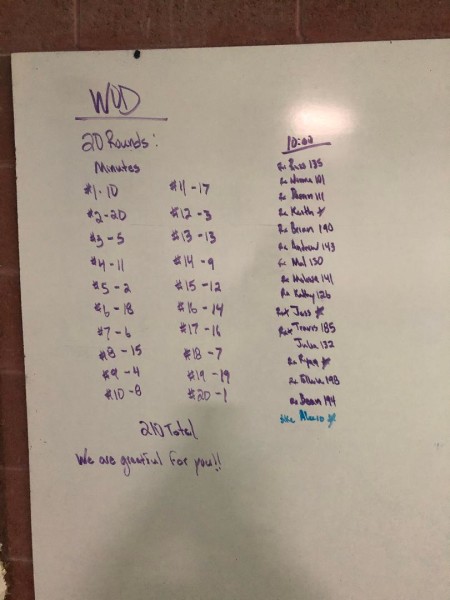 WOD
20 Rounds:
Minutes
#1-10
#2-20
#3-5
#4-11
#5-2
#6-18
#7-6
#8-15
#9-4
#10-8
#11-17
#12-3
#13-13
#14-9
#15-12
#16-14
#17-16
#18-7
#19-19
#20-1
210 Total
We are grateful for you!!
10:00
Rx Russ 135
Rx 101
Rx 111
Rx Keith
Rx Brian 190
Rx Andrew 143
Rx Mel 130
Rx 141
Rx Kathy 126
Rx+ Jess
Rx+ Travis 185
Julie 132
Rx Ryan
Rx 198
Rx 194